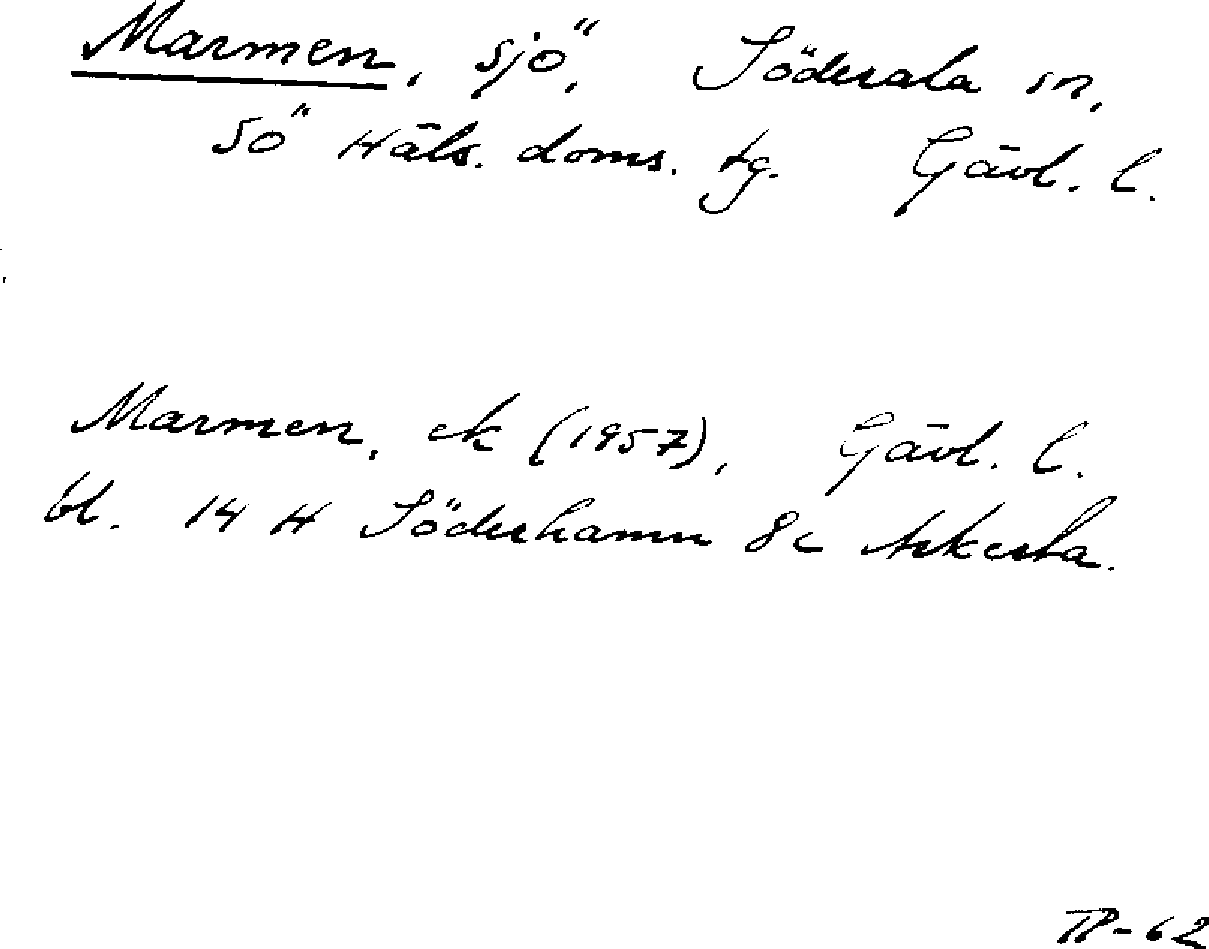 Marmen, sjö, Söderala sn,
Sö Häls. doms. tg. Gävl. l.
Marmen, ek (1957), Gävl. l.
bl. 14 H Söderhamn 8c Askesta.
TP-62